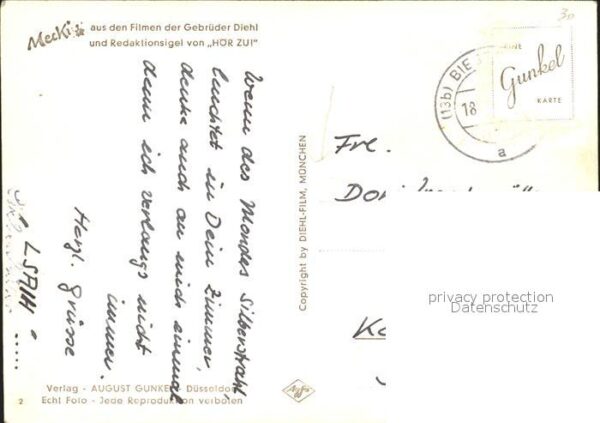 Mecki
aus den Filmen der Gebrüder Diehl
und Redaktionsigel von „HÖR ZU!"
Wenn des Mondes Silberstrahl,
leuchtet in Dein Zimmer,
denke auch an mich einmal
denn ich verlang's nicht
immer.
Herzl. Grüsse
Verlag - AUGUST GUNKEL - Düsseldorf
Echt Foto - Jede Reproduktion verboten
2
Copyright by DIEHL-FILM, MÜNCHEN
Agfa
30
(13b) BIE
18
a
EINE
Gunkel
KARTE
Frl.
privacy protection
Datenschutz